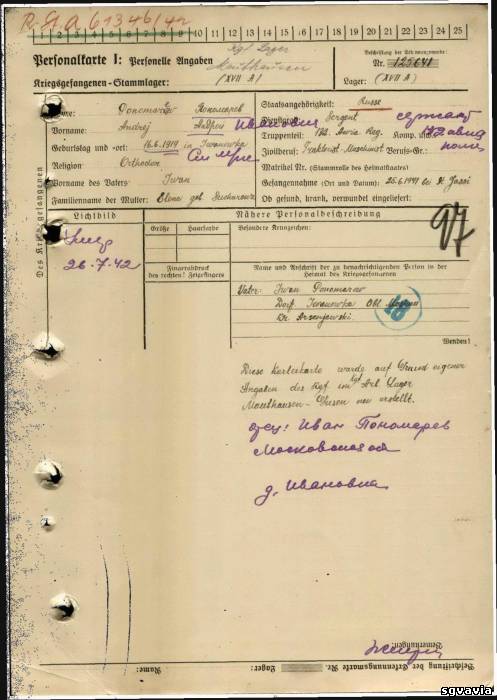 R.St.A 61346/42
1 2 3 4 5 6 7 8 9 10 11 12 13 14 15 16 17 18 19 20 21 22 23 24 25
Kgf Lager
Personalkarte I: Personelle Angaben
Mauthausen
Beschriftung der Erkennungsmarke
Nr. 125641
Kriegsgefangenen-Stammlager:
(XVII A)
Lager: (XVII A)
Des Kriegsgefangenen
Name: Ponomarew Пономарев
Vorname: Andrej Андрей Иванович
Geburtstag und -ort: 16.6.1919 in Iwanowka
Religion Orthodox
Vorname des Vaters Iwan
Familienname der Mutter: Elena geb.
Staatsangehörigkeit: Russe
Dienstgrad: Sergent сержант
Truppenteil: 172. Avia Reg. Komp. usw.: 172 авиа
полк
Zivilberuf: Traktorist-Maschinist Berufs-Gr.:
Matrikel Nr. (Stammrolle des Heimatstaates)
Gefangennahme (Ort und Datum): 25.6.1941 bei St. Jassi
Ob gesund, krank, verwundet eingeliefert:
Lichtbild
Умер
26.7.42
Nähere Personalbeschreibung
Größe
Haarfarbe
Besondere Kennzeichen:
97
Fingerabdruck
des rechten! Zeigefingers
Name und Anschrift der zu benachrichtigenden Person in der
Heimat des Kriegsgefangenen
Vater: Iwan Ponomarew
Dorf Iwanowka Obl. Moskau
Arsenjewski
Wenden!
Diese Karteikarte wurde auf Grund eigener
Angaben des Kgf im Kgf Arb. Lager
Mauthausen-Gusen neu erstellt.
отец: Иван Пономарев
Московская об
д. Ивановка
Bemerkungen:
Beschriftung der Erkennungsmarke Nr.
Lager:
Name:
sgvavia